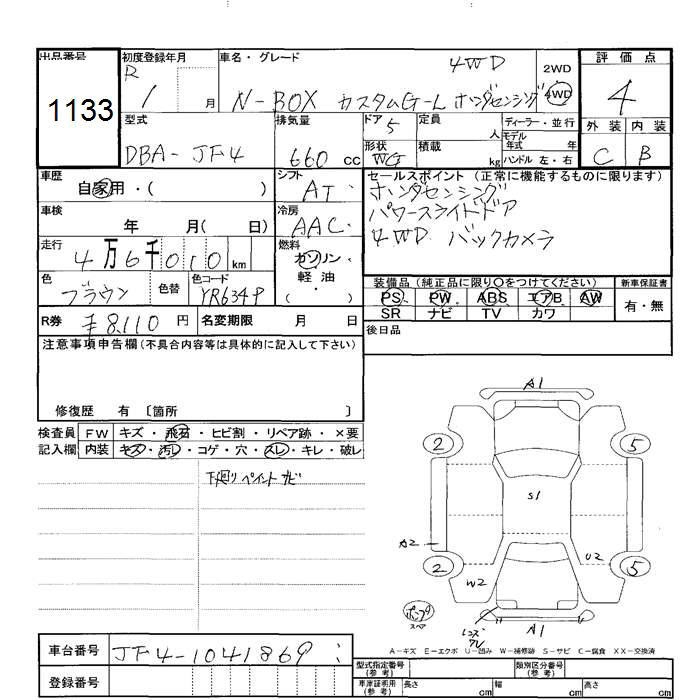 出品番号 初度登録年月 車名・グレード 評価点
1133
R 1 月
N-BOX カスタムG-L ホンダセンシング 4WD
2WD
4WD
4
型式 排気量 ドア 定員 ディーラー・並行 外装 内装
DBA-JF4 660 cc 5 人 モデル年式 年
形状 積載 C B
WG kg ハンドル 左・右
車歴 シフト セールスポイント (正常に機能するものに限ります)
自家用・( ) AT ホンダセンシング
パワースライドドア
4WD バックカメラ
車検 冷房
年 月( 日) AAC
走行 燃料
4万6千010km ガソリン・軽油・( )
色 色替 色コード
ブラウン YR634P
装備品 (純正品に限り○をつけてください) 新車保証書
PS PW ABS エアB AW 有・無
SR ナビ TV カワ
R券 ¥8,110 円 名変期限 月 日
後日品
注意事項申告欄(不具合内容等は具体的に記入して下さい)
修復歴 有 〔箇所 〕
検査員 FW キズ・飛石・ヒビ割・リペア跡・×要
記入欄 内装 キズ・汚レ・コゲ・穴・スレ・キレ・破レ
下廻り ペイント サビ
A1
2 5
S1
A2 U2
2 5
W2
スペア
A1
A-キズ E-エクボ U-凹み W-補修跡 S-サビ C-腐食 XX-交換済
車台番号 JF4-1041869
登録番号
型式指定番号(参考) 類別区分番号(参考)
車庫証明用(参考) 長さ cm 幅 cm 高さ cm